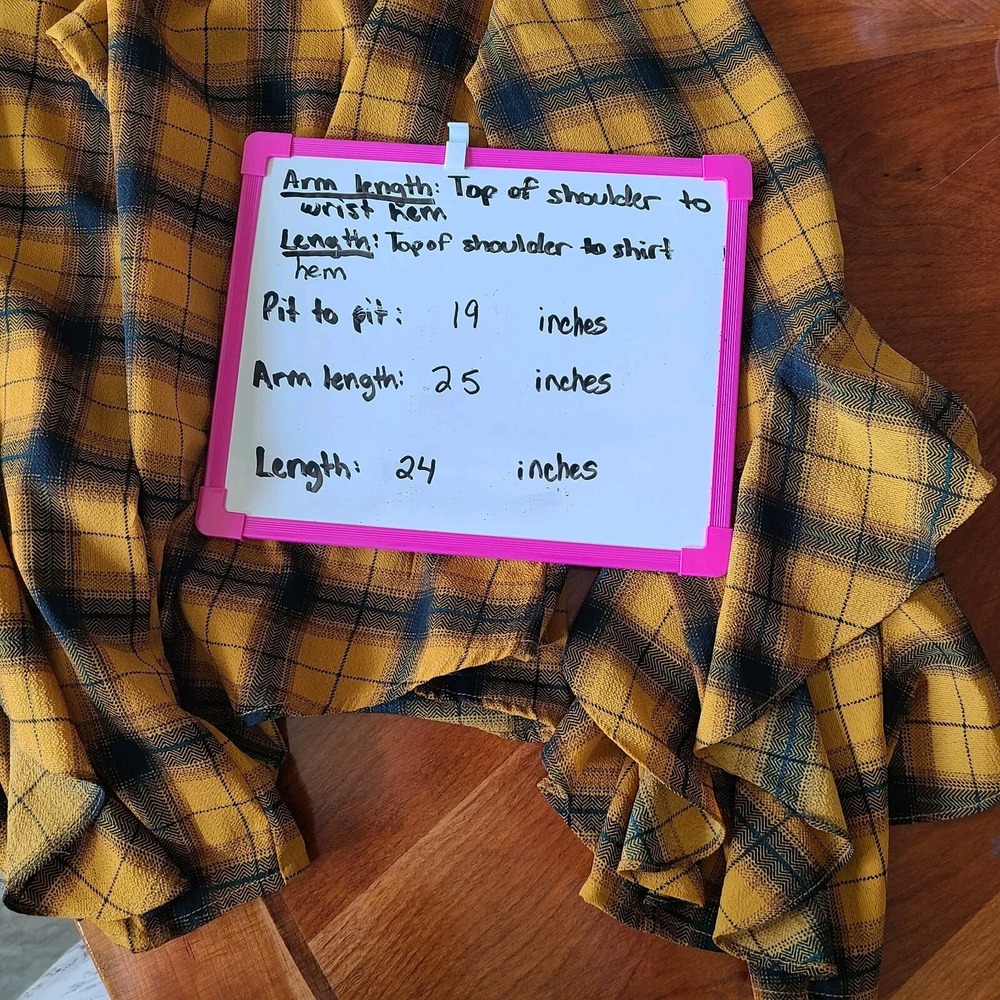 Arm length: Top of shoulder to
wrist hem
Length: Top of shoulder to shirt
hem
Pit to pit: 19 inches
Arm length: 25 inches
Length: 24 inches